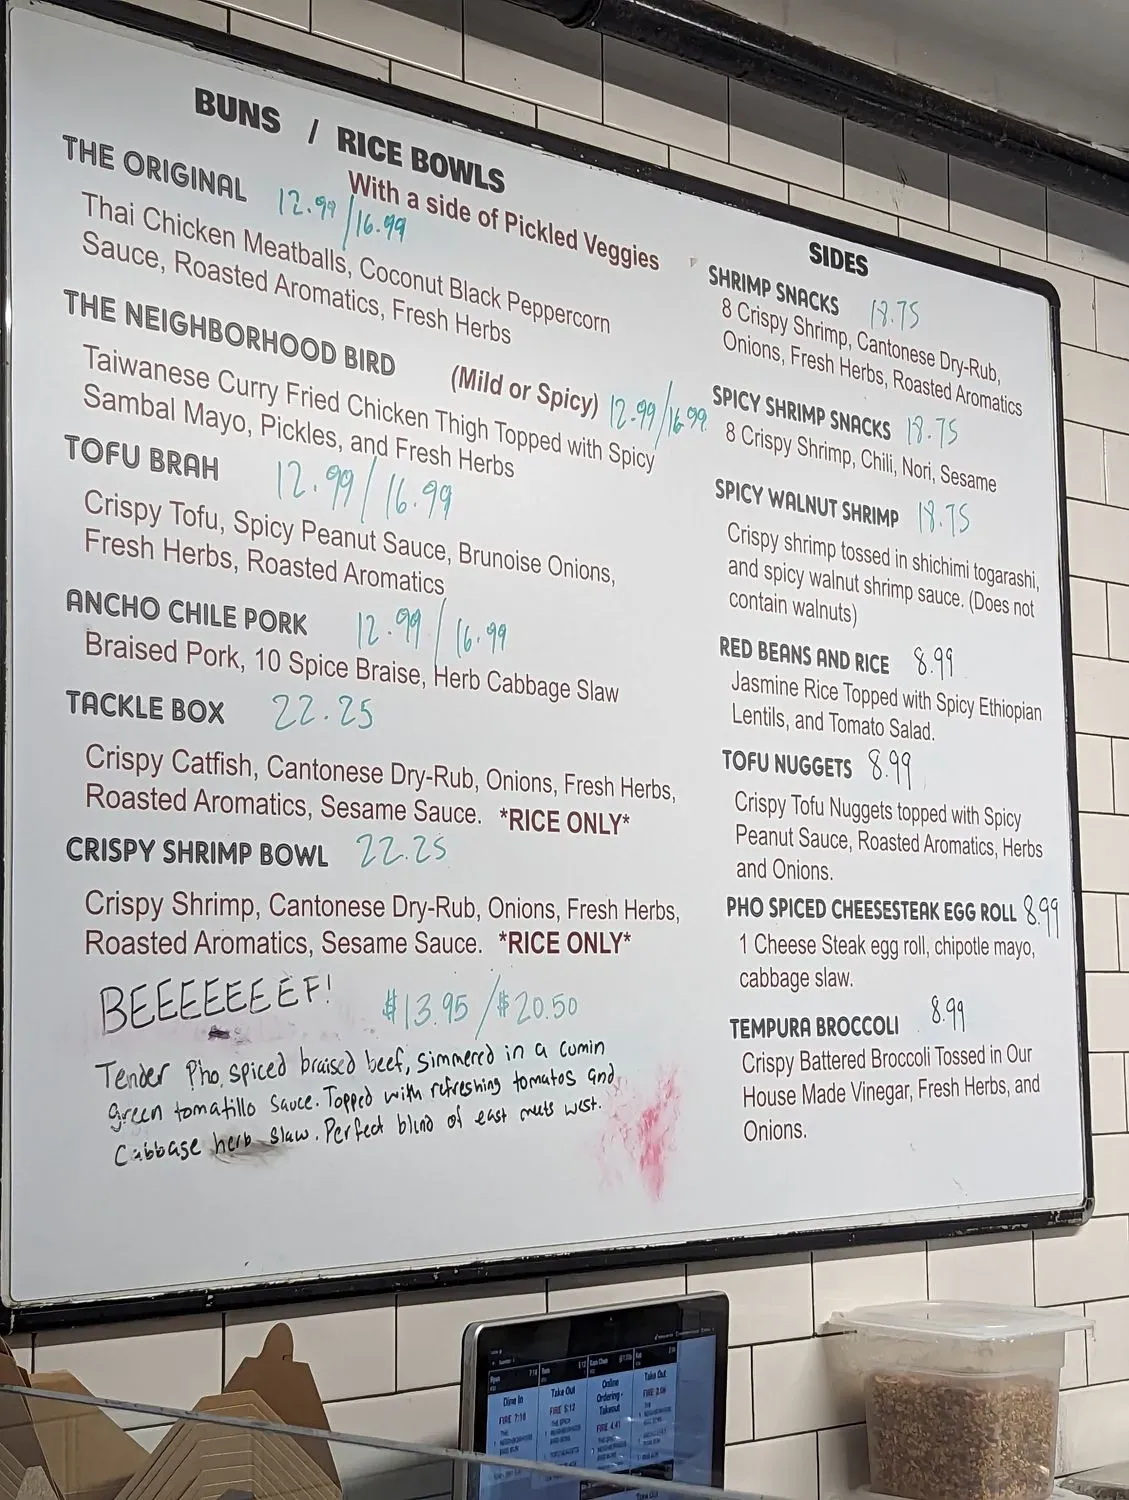 BUNS / RICE BOWLS
With a side of Pickled Veggies
THE ORIGINAL 12.99/16.99
Thai Chicken Meatballs, Coconut Black Peppercorn
Sauce, Roasted Aromatics, Fresh Herbs
THE NEIGHBORHOOD BIRD (Mild or Spicy) 12.99/16.99
Taiwanese Curry Fried Chicken Thigh Topped with Spicy
Sambal Mayo, Pickles, and Fresh Herbs
TOFU BRAH 12.99/16.99
Crispy Tofu, Spicy Peanut Sauce, Brunoise Onions,
Fresh Herbs, Roasted Aromatics
ANCHO CHILE PORK 12.99/16.99
Braised Pork, 10 Spice Braise, Herb Cabbage Slaw
TACKLE BOX 22.25
Crispy Catfish, Cantonese Dry-Rub, Onions, Fresh Herbs,
Roasted Aromatics, Sesame Sauce. *RICE ONLY*
CRISPY SHRIMP BOWL 22.25
Crispy Shrimp, Cantonese Dry-Rub, Onions, Fresh Herbs,
Roasted Aromatics, Sesame Sauce. *RICE ONLY*
BEEEEEEEF! $13.95/$20.50
Tender Pho spiced braised beef, simmered in a cumin
green tomatillo sauce. Topped with refreshing tomatos and
Cabbage herb slaw. Perfect blind of east meets west.
SIDES
SHRIMP SNACKS 18.75
8 Crispy Shrimp, Cantonese Dry-Rub,
Onions, Fresh Herbs, Roasted Aromatics
SPICY SHRIMP SNACKS 18.75
8 Crispy Shrimp, Chili, Nori, Sesame
SPICY WALNUT SHRIMP 18.75
Crispy shrimp tossed in shichimi togarashi,
and spicy walnut shrimp sauce. (Does not
contain walnuts)
RED BEANS AND RICE 8.99
Jasmine Rice Topped with Spicy Ethiopian
Lentils, and Tomato Salad.
TOFU NUGGETS 8.99
Crispy Tofu Nuggets topped with Spicy
Peanut Sauce, Roasted Aromatics, Herbs
and Onions.
PHO SPICED CHEESESTEAK EGG ROLL 8.99
1 Cheese Steak egg roll, chipotle mayo,
cabbage slaw.
TEMPURA BROCCOLI 8.99
Crispy Battered Broccoli Tossed in Our
House Made Vinegar, Fresh Herbs, and
Onions.
Dine In
FIRE 7:18
Take Out
FIRE 5:12
Online
Ordering -
Takeout
FIRE 4:41
Take Out
FIRE 3:06